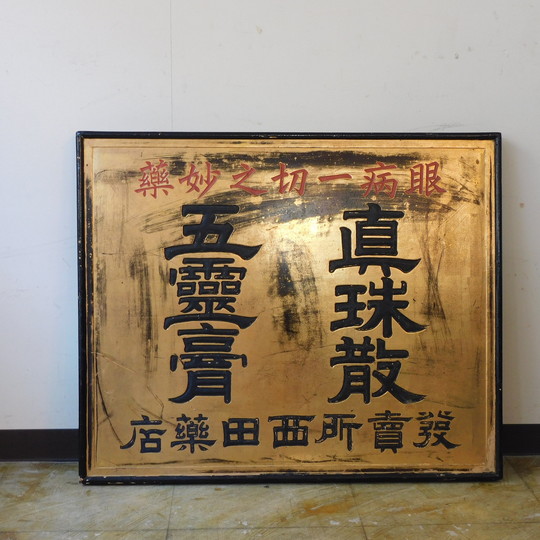 眼病一切之妙藥
真珠散
五靈膏
發賣所西田藥店